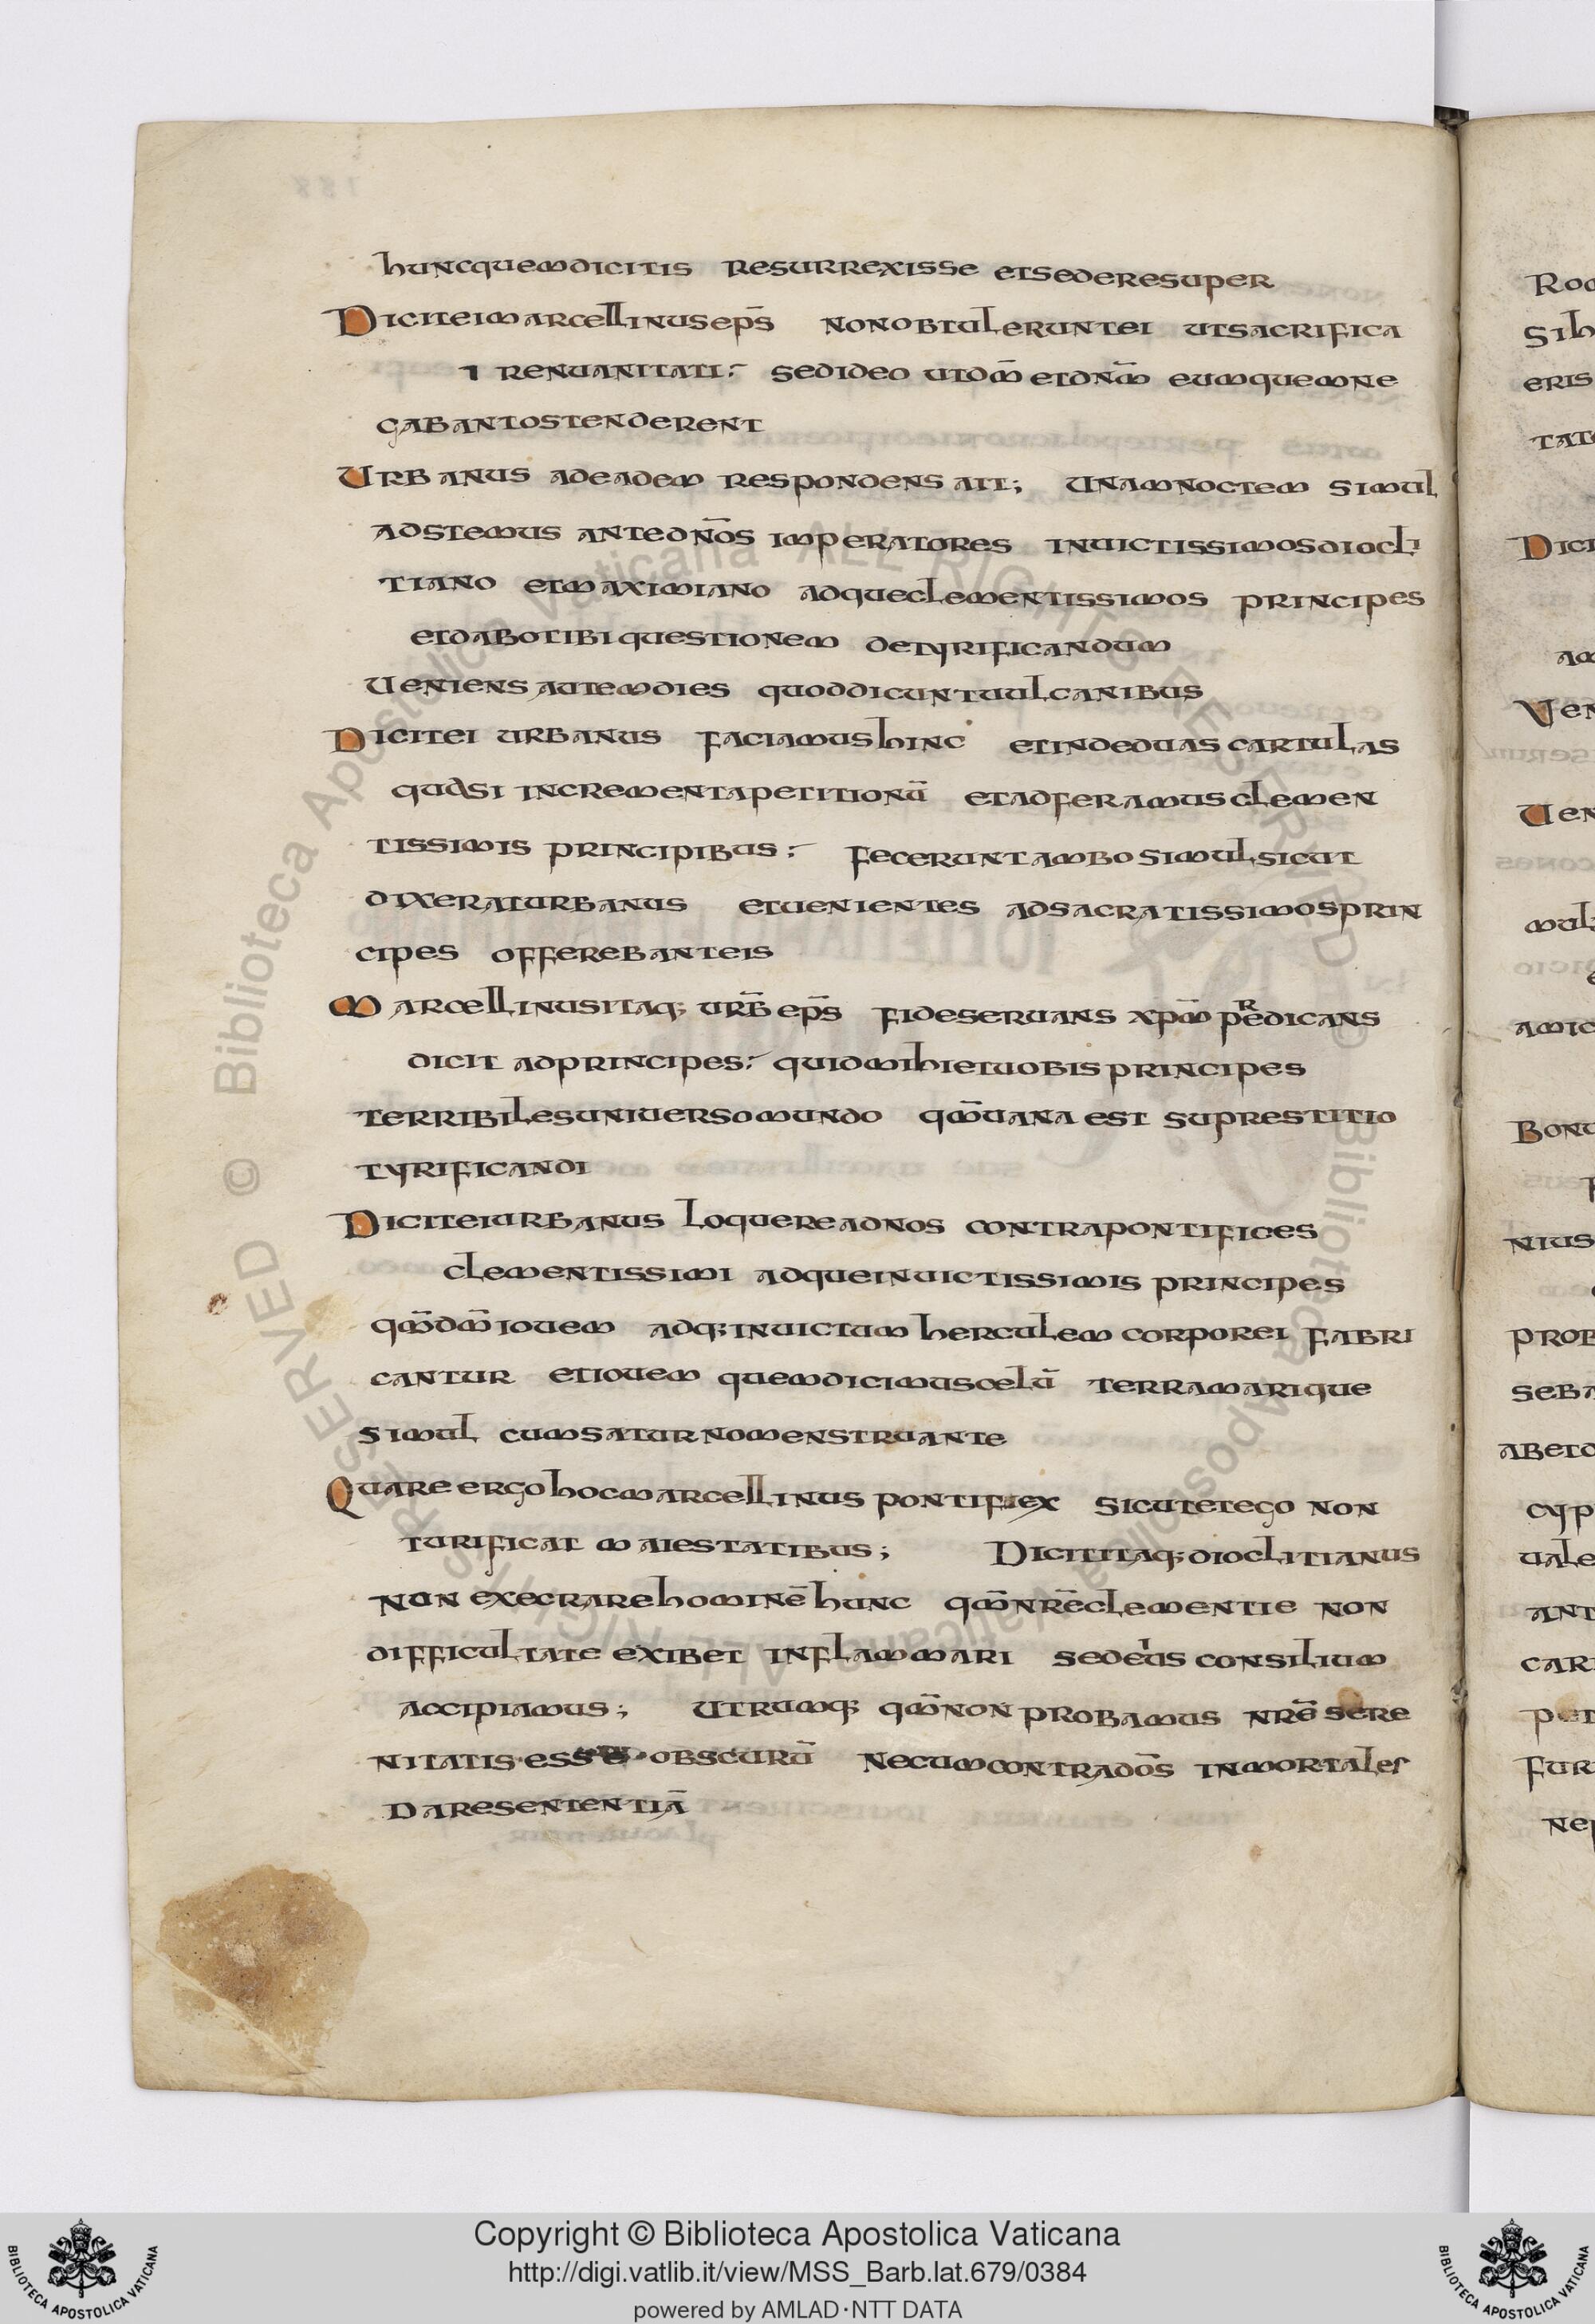 huncquemdicitis resurrexisse etsederesuper
Diciteimarcellinusep̄s nonobtuleruntei utsacrifica
renuanitati: sedideo utdm̄ etdn̄m eumquemne
gabantostenderent
Urbanus adeadem respondens ait; unamnoctem simul
adstemus antedn̄os imperatores inuictissimosdiocli
tiano etmaximiano adqueclementissimos principes
etdabotibiquestionem detyrificandum
Ueniensautemdies quoddicuntuulcanibus
Dicitei urbanus faciamushinc etindeduascartulas
quasi incrementapetitionū etadferamusclemen
tissimis principibus: feceruntambosimulsicut
dixeraturbanus etuenientes adsacratissimosprin
cipes offerebanteis
Marcellinusitaq; urb̄ ep̄s fideseruans xpm̄ predicans
dicit adprincipes: quidmihietuobisprincipes
terribilesuniuersomundo qm̄uana est suprestitio
tyrificandi
Diciteiurbanus loquereadnos contrapontifices
clementissimi adqueinuictissimis principes
qm̄dm̄iouem adq;inuictum herculem corporei fabri
cantur etiouem quemdicimuscelū terramarique
simul cumsaturnomenstruante
Quare ergo hocmarcellinus pontifiex sicutetego non
turificat maiestatibus; Dicititaq;dioclitianus
Non execrarehominē hunc qm̄nrēclementie non
difficultate exibet inflammari sedeius consilium
accipiamus; Utrumq; qm̄non probamus nrē sere
nitatis esse obscurū Necumcontradōs inmortales
daresententiā
Copyright © Biblioteca Apostolica Vaticana
http://digi.vatlib.it/view/MSS_Barb.lat.679/0384
powered by AMLAD·NTT DATA